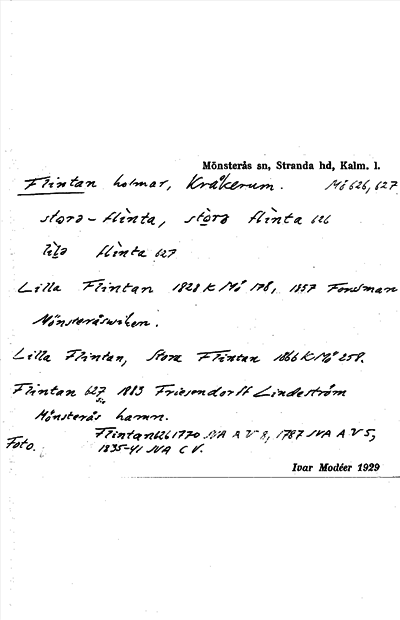 Mönsterås sn, Stranda hd, Kalm. l.
Flintan holmar, Kråkerum. Mö 626, 627
storə-flìnta, stòrə flinta 626
lìlə flìnta 627
Lilla Flintan 1828 K Mö 178, 1857 Forsman
Mönsteråsviken.
Lilla Flintan, Stora Flintan 1866 K Mö 258.
Flintan 627 1883 Friesendorff Lindeström
Mönsterås hamn.
Flintan 626 1770 SVA A V 8, 1787 SVA A V 5,
Foto. 1835-41 SVA C V.
Ivar Modéer 1929